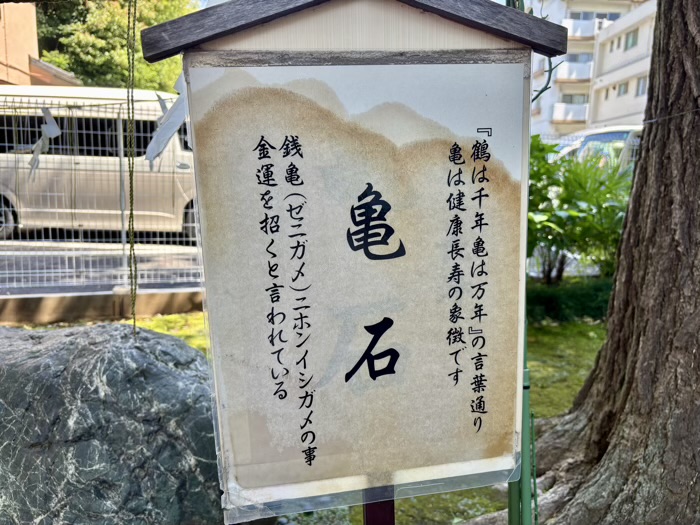 『鶴は千年亀は万年』の言葉通り
亀は健康長寿の象徴です
亀石
銭亀(ゼニガメ)ニホンイシガメの事
金運を招くと言われている